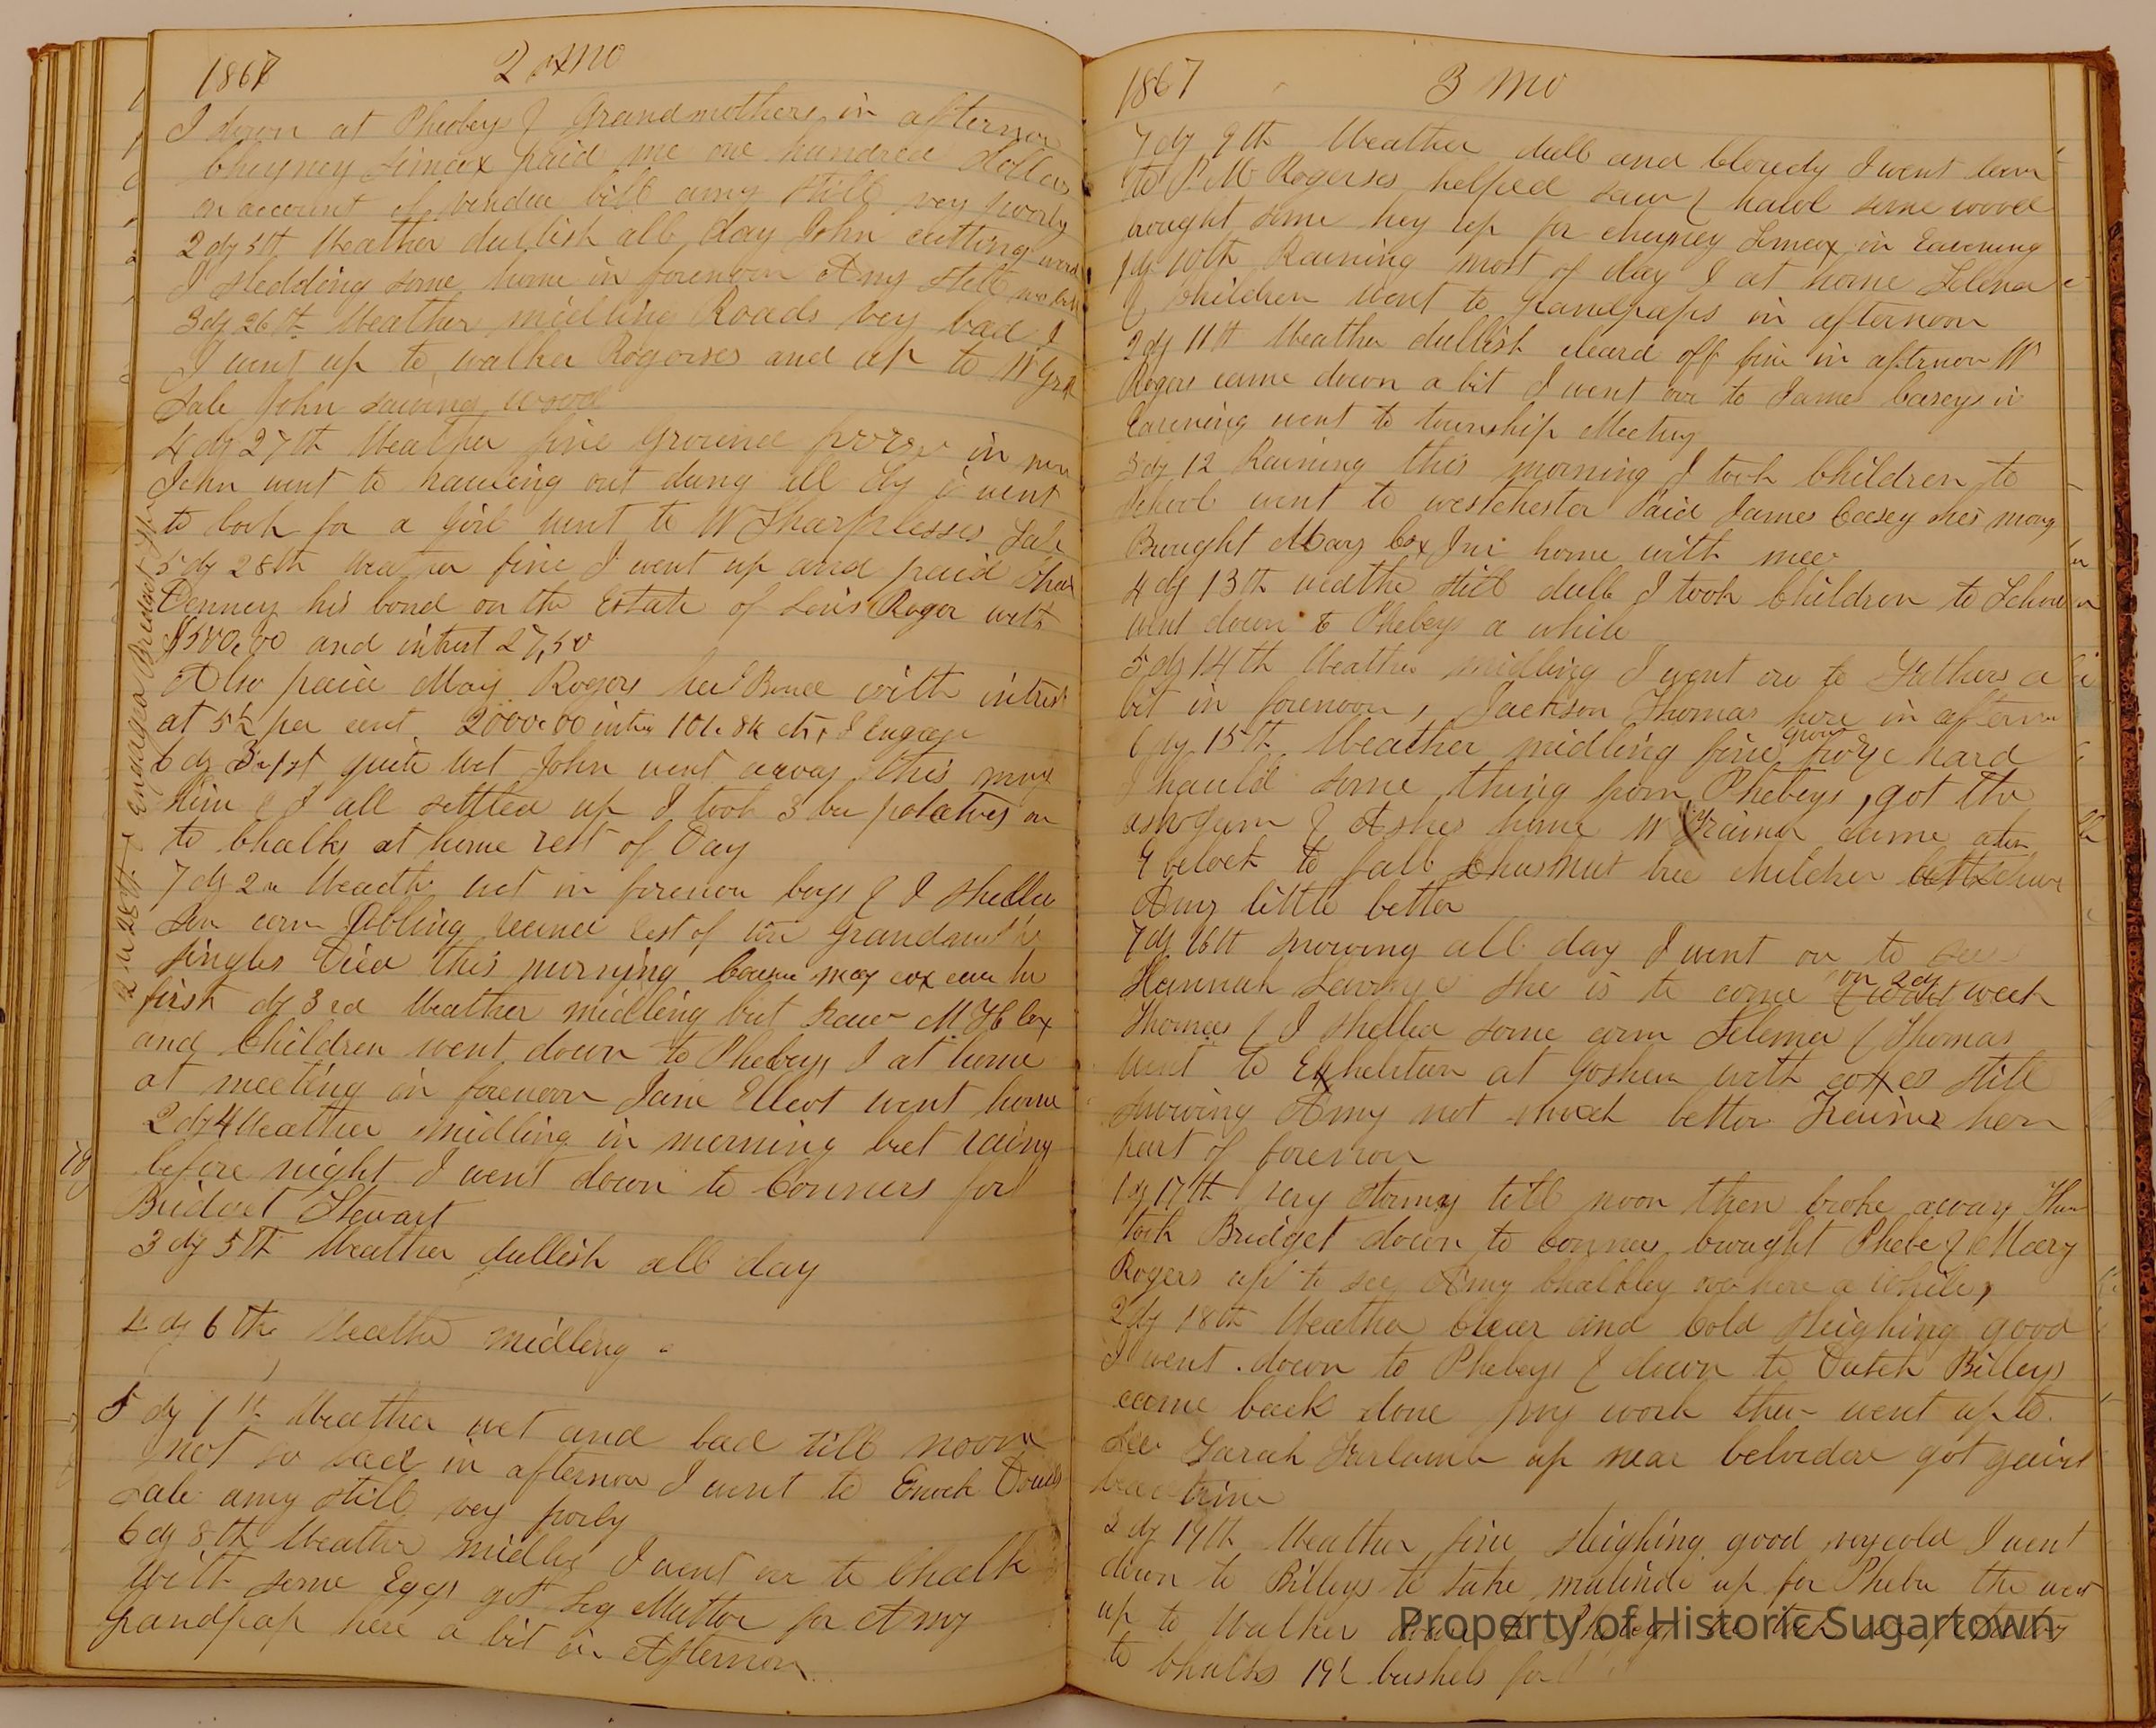 1867 2 mo
I down at Phebeys & Grandmothers in afternoon
Cheyney Limeax paid me one hundred dollars
on account of vendue bill amy still very poorly
2 dy 5th Weather dullish all day John cutting wood
I sledding some home in forenoon Amy still no better
3 dy 26th Weather midling Roads very bad I
I went up to walker Rogerses and up to W
Sale John sawing wood
4 dy 27th Weather fine ground froze in
John went to hauling out dung all dy i went
to look for a girl went to W Sharplesses Sale
5 dy 28th Weather fine I went up and paid
Denney his bond on the Estate of Levis Roger with
$500.00 and intrest 27,50
Also paid May Rogers her Bond with intrest
at 5½ per cent 2000.00 I engage
6 dy 3 m 1st quite wet John went away this
him & I all settled up I took 3 bu potatoes on
to Chalks at home rest of Day
7 dy 2n Weather wet in forenoon boys & I shelled
Som corn
singles Died this morning may cox
first dy 3rd Weather midling but Raw M H Cox
and Children went down to Phebeys I at home
at meeting in forenoon Jane Elleot went home
2 dy 4 Weather midling in morning but rainy
before night I went down to Conners for
Bridget Stewart
3 dy 5th Weather dullish all day
4 dy 6th Weather midleng
5 dy 7th Weather wet and bad till noon
not so bad in afternoon I went to Enoch
Sale amy still very porly
6 dy 8th Weather midling I went over to Chalk
With some Eggs got Leg Mutton for Amy
grandpap here a bit in Afternoon
2 m 28th I Engaged Bridget
1867 3 mo
7 dy 9th Weather dull and Cloudy I went
to P M Rogerses helped saw & hawl some wood
brought some hey up for cheyney Limeax in Eavening
1 dy 10th Raining most of day I at home Selena
& Children went to Grandpaps in afternoon
2 dy 11th Weather dullish cleard off fine in afternoon W
Rogers came down a bit I went over to James Caseys in
Eavening went to township Meeting
3 dy 12 Raining this morning I took Children to
School went to westchester Paid James Casey his mony
Brought Mary Cox Jnr home with mee
4 dy 13th weathe still dull I took Children to School
went down to Phebeys a while
5 dy 14th Weather midling I went over to Fathers a
bit in forenoon, Jackson Thomas here in afternoon
6 dy 15th Weather midling fine ground froze hard
I hauld some thing from Phebeys, got the
& Ashes home W Trainer came
9 oclock to fall Chusnut tree children
Amy little better
7 dy 16th snowing all day I went over to see
Hannah she is to come on 2 dy week
Thomas & I shelled some corn Selema & Thomas
went to Exhebition at Goshen with coxes still
snowing Amy not much better Trainer here
part of forenoon
1 dy 17th very stormy till noon then broke away
took Bridget down to Conners brought Phebe & Mary
Rogers up to see Amy Chalkley was here a while,
2 dy 18th Weather Clear and Cold sleighing good
I went down to Phebeys & down to Dutch Billeys
came back done my work then went up to
see Sarah up near belvidere got
3 dy 19th Weather fine sleighing good very cold I went
down to Billeys to take malinda up for Phebe the went
up to Walker
to Chalks 19½ bushels for
Property of Historic Sugartown